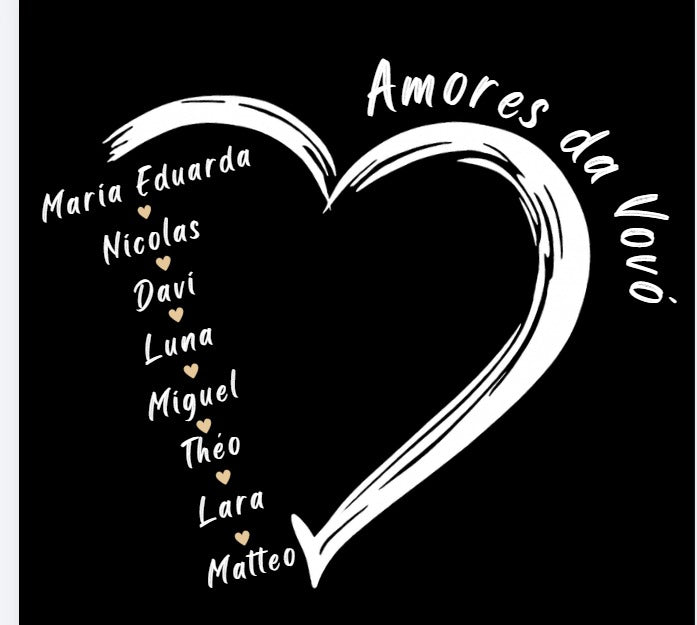 Amores da Vovó
Maria Eduarda
Nicolas
Davi
Luna
Miguel
Théo
Lara
Matteo